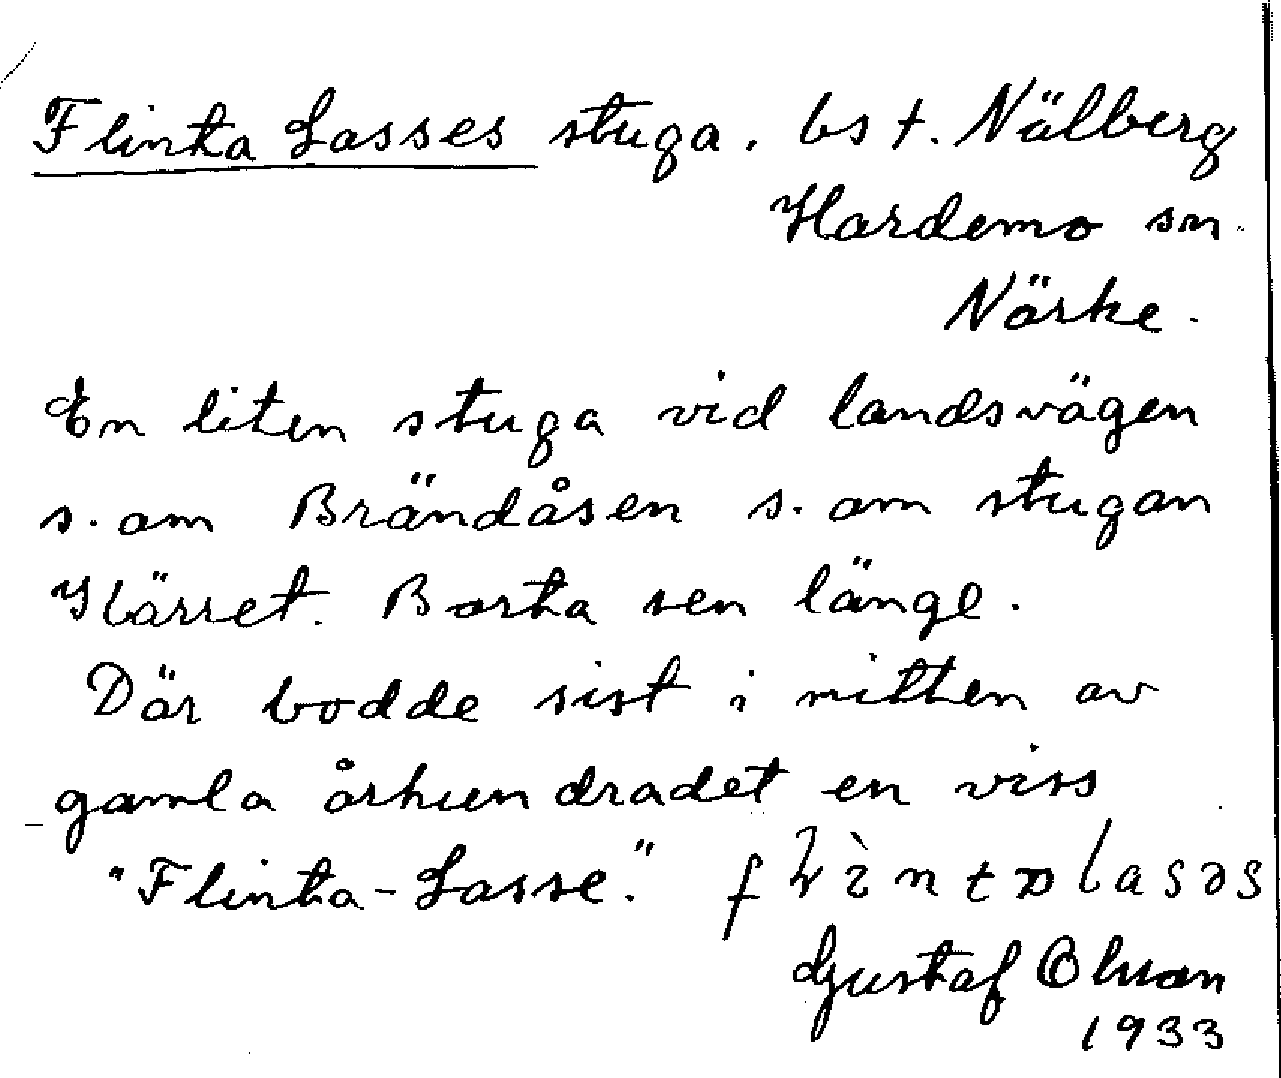 Flinta Lasses stuga. bs t. Nälberg
Hardemo sn.
Närke.
En liten stuga vid landsvägen
s. om Brändåsen s. om stugan
Kärret. Borta sen länge.
Där bodde sist i mitten av
gamla århundradet en viss
"Flinta-Lasse."
Gustaf Olsson
1933